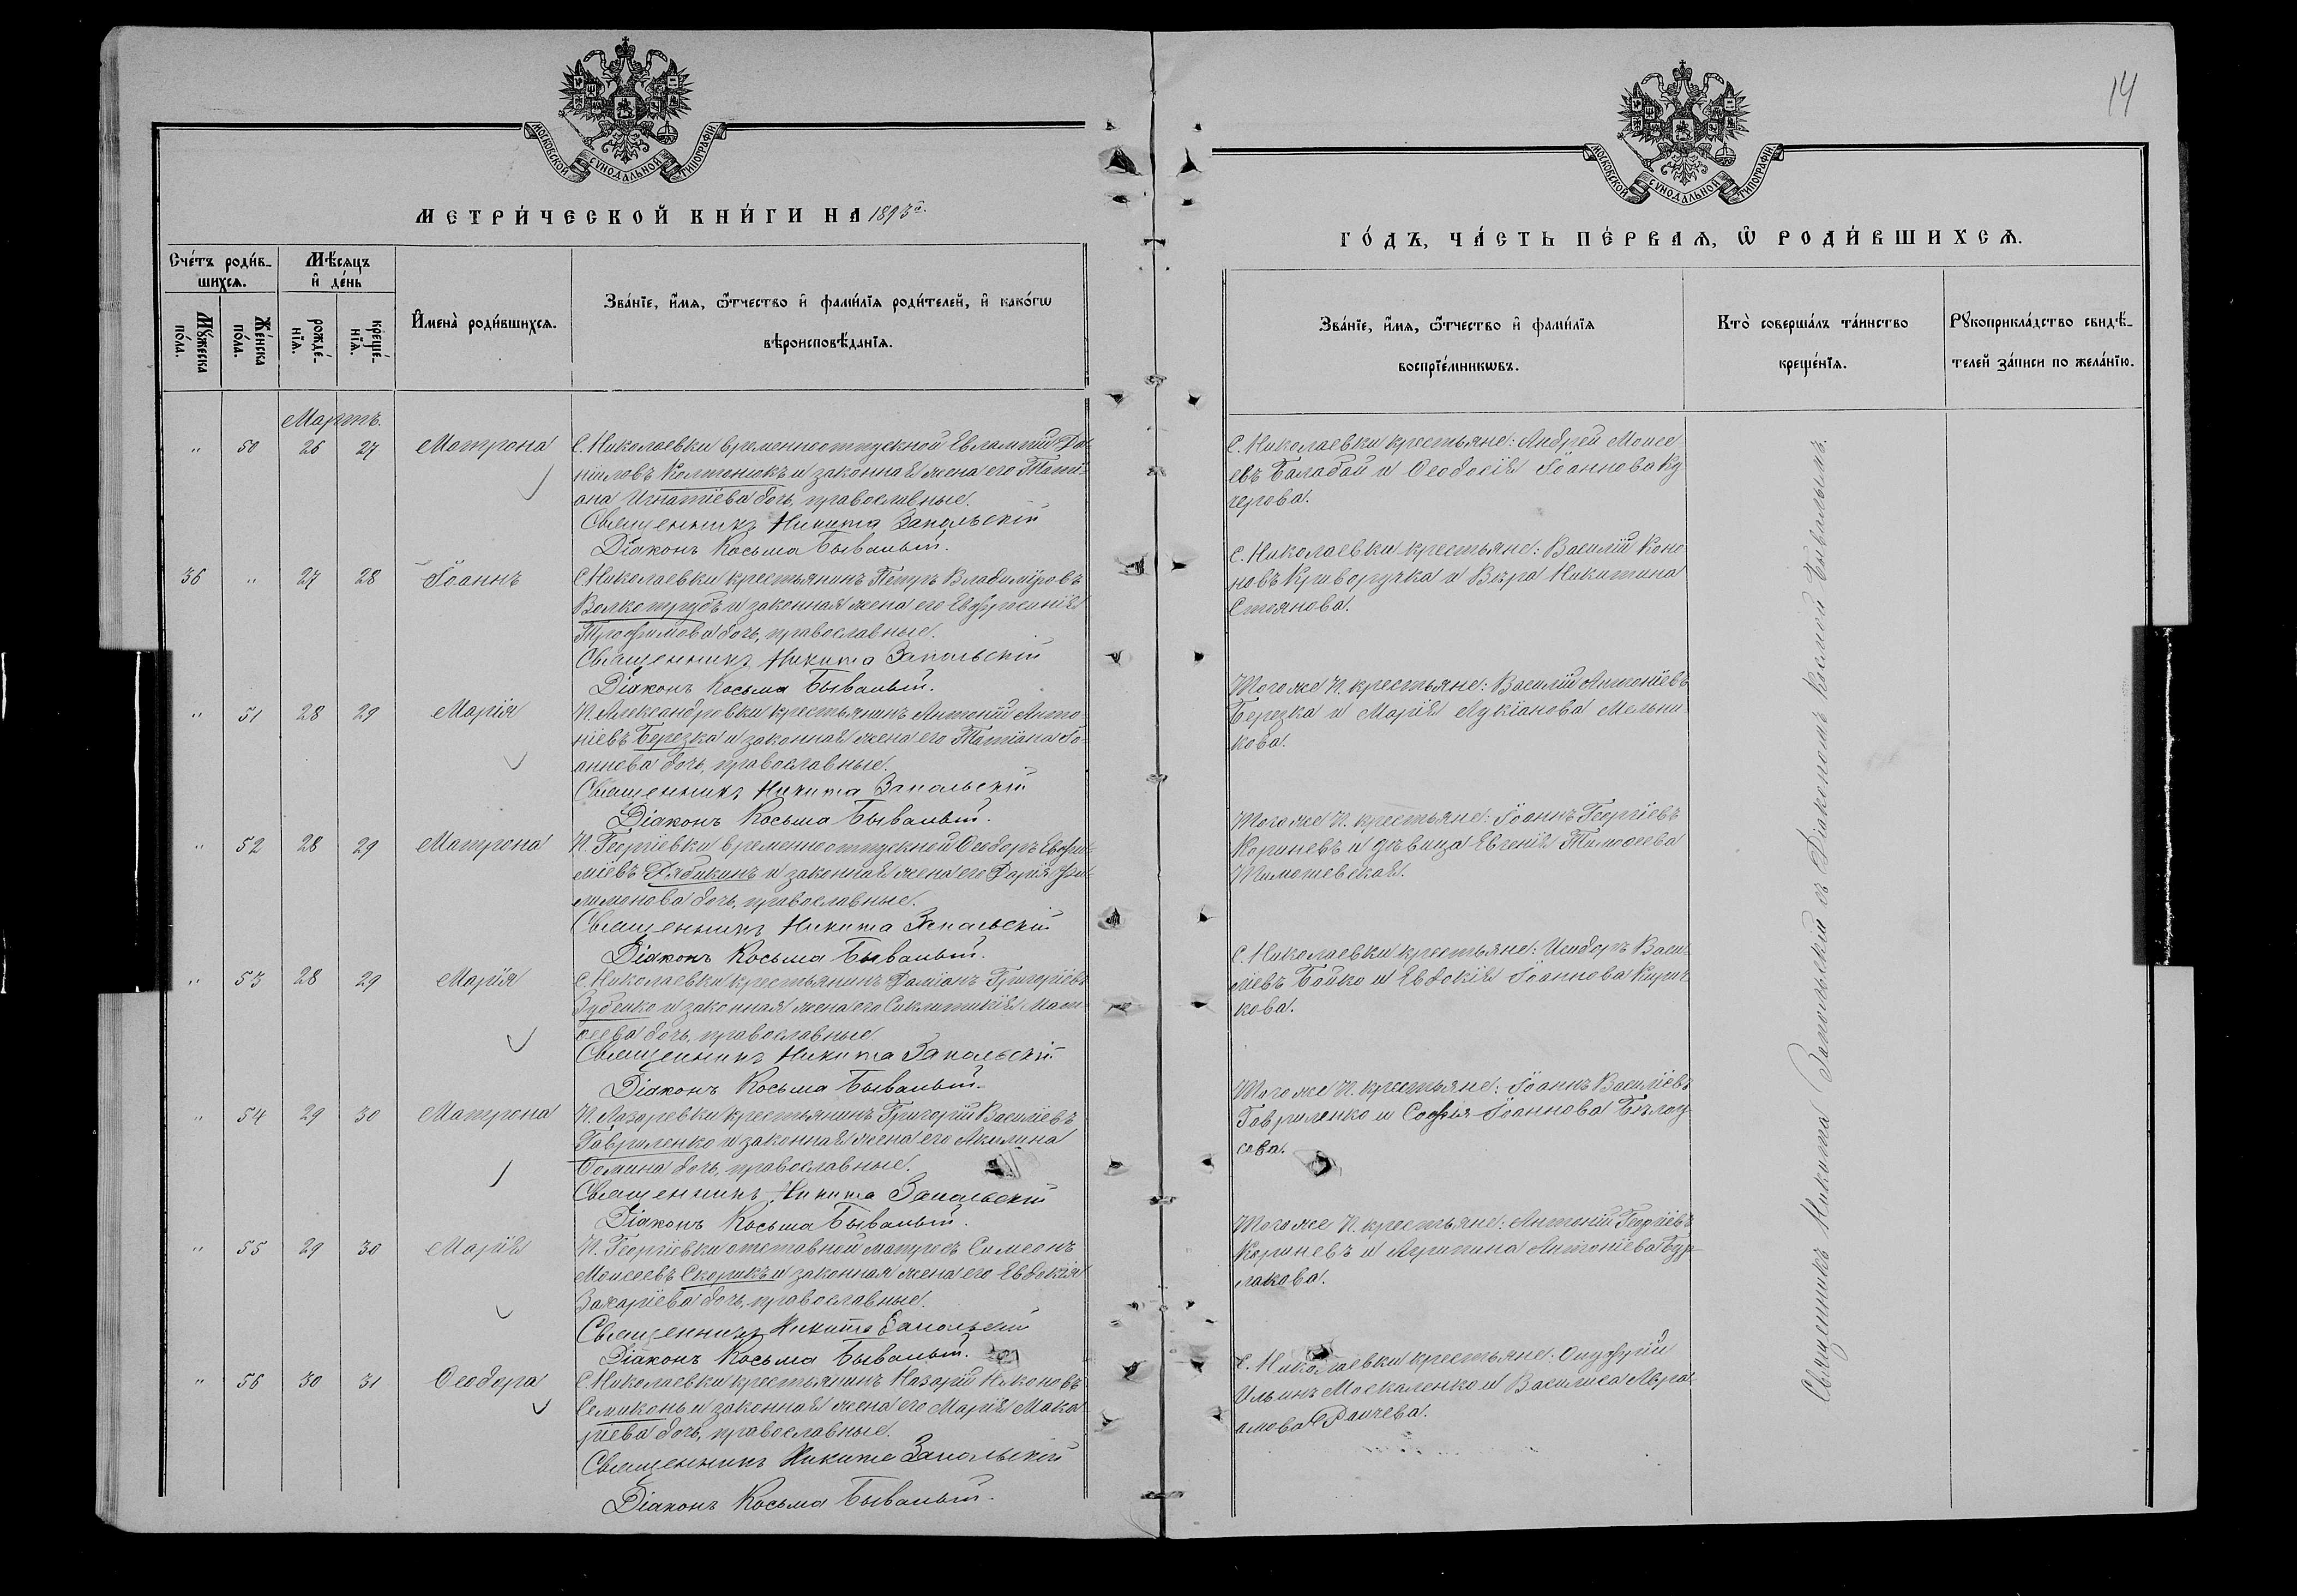 МОСКОВСКОЙ СѴНОДАЛЬНОЙ ТИПОГРАФІИ.
МЕТРИ́ЧЕСКОЙ КНИ́ГИ НА 1893й.
Сче́тъ роди́в-
шихсѧ.
Мѣ́сѧцъ
и҆ де́нь
Мꙋ́жеска
по́ла.
Же́нска
по́ла.
рожде́-
нїѧ.
креще́-
нїѧ.
И҆мена̀ роди́вшихсѧ.
Зва́нїе, и҆́мѧ, ѻ҆́тчество и҆ фами́лїѧ роди́телей, и҆ како́гѡ
вѣроисповѣ́данїѧ.
Мартъ.
" 50 26 27 Матрона
С. Николаевки временноотпускной Евлампій Да-
ніиловъ Колтонюкъ и законная жена его Тати-
ана Игнатіева дочь, православные.
Священникъ Никита Запольскій
Діаконъ Косьма Бывалый.
36 " 27 28 Іоаннъ
С. Николаевки крестьянинъ Петръ Владиміровъ
Волкотрубъ и законная жена его Евфросинія
Трофимова дочь, православные.
Священникъ Никита Запольскій
Діаконъ Косьма Бывалый.
" 51 28 29 Марія
П. Александровки крестьянинъ Антоній Анто-
ніевъ Березка и законная жена его Татіана Іо-
аннова дочь, православные.
Священникъ Никита Запольскій
Діаконъ Косьма Бывалый.
" 52 28 29 Матрона
П. Георгіевки временноотпускной Ѳеодоръ Евфи-
міевъ Дядикинъ и законная жена его Дарія Фи-
лимонова дочь, православные.
Священникъ Никита Запольскій
Діаконъ Косьма Бывалый.
" 53 28 29 Марія
С. Николаевки крестьянинъ Даміанъ Григоріевъ
и законная жена его Синклитикія Мат-
ѳеева дочь, православные.
Священникъ Никита Запольскій
Діаконъ Косьма Бывалый.
" 54 29 30 Матрона
П. Лазаревки крестьянинъ Григорій Василіевъ
Гавриленко и законная жена его Акилина
Ѳомина дочь, православные.
Священникъ Никита Запольскій
Діаконъ Косьма Бывалый.
" 55 29 30 Марія
П. Георгіевки отставной матросъ Симеонъ
Моисеевъ Скорикъ и законная жена его Евдокія
Захаріева дочь, православные.
Священникъ Никита Запольскій
Діаконъ Косьма Бывалый.
" 56 30 31 Ѳеодора
С. Николаевки крестьянинъ Назарій Никоновъ
Семиконь и законная жена его Марія Мака-
ріева дочь, православные.
Священникъ Никита Запольскій
Діаконъ Косьма Бывалый.
14
МОСКОВСКОЙ СѴНОДАЛЬНОЙ ТИПОГРАФІИ.
ГО́ДЪ, ЧА́СТЬ ПЕ́РВАѦ, Ѡ҆ РОДИ́ВШИХСѦ.
Зва́нїе, и҆́мѧ, ѻ҆́тчество и҆ фами́лїѧ
воспрїе́мникѡвъ.
Кто̀ соверша́лъ та́инство
креще́нїѧ.
Рꙋкоприкла́дство свидѣ́-
телей за́писи по жела́нїю.
С. Николаевки крестьяне: Андрей Моисе-
евъ Балабай и Ѳеодосія Іоаннова Ку-
черова.
С. Николаевки крестьяне: Василій Коно-
новъ Криворучка и Вѣра Никитина
Стоянова.
Того же П. крестьяне: Василій Антоніевъ
Березка и Марія Лукіанова Мельни-
кова.
Того же П. крестьяне: Іоаннъ Георгіевъ
Кориневъ и дѣвица Евгенія Тимоѳеева
Тимошевская.
С. Николаевки крестьяне: Исидоръ Васи-
ліевъ Бойко и Евдокія Іоаннова Кирич-
кова.
Того же П. крестьяне: Іоаннъ Василіевъ
Гавриленко и Софія Іоаннова Бѣлоу-
сова.
Того же П. крестьяне: Антоній Георгіевъ
Кориневъ и Агрипина Антоніева Бур-
лакова.
С. Николаевки крестьяне: Онуфрій
Ильинъ Москаленко и Василиса Авра-
амова Раичева.
Священникъ Никита Запольскій съ Діакономъ Космой Бывалымъ.